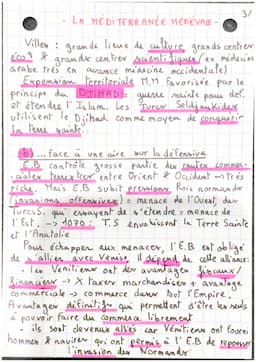 3/
- LA MÉDITERRANÉE MÉDIÉVALE -
Villes : grands lieux de culture, grands centres
éco° & grands centres scientifiques (ex médecine
arabe très en avance médecine occidentale)
Expansion territoriale M.M favorisée par le
principe du DJIHAD = guerre sainte pour déf.
et étendre l'Islam. Les Turcs Seldjoukides
utilisent le Djihad comme moyen de conquérir
la terre sainte.
b) ...face à une aire sur la défensive
E.B contrôle grosse partie des routes commer-
-ciales terrestres entre Orient & Occident → très
riche. Mais E.B subit pressions Rois normands
(invasions offensives) = menace de l'Ouest, des
Turcs S. qui essayent de s'étendre = menace de
l'Est. → 1070 : T.S envahissent la Terre Sainte
et l'Anatolie
Pour échapper aux menaces, l'E.B est obligé
de s'allier avec Venise. Il dépend de cette alliance:
. les Vénitiens ont des avantages fiscaux/
financiers → X taxes marchandises + avantage
commerciale → commerce dans tout l'Empire.
Avantages définitifs qui permettent d'être les seuls
à pouvoir faire du commerce librement
. ils sont devenus alliés car Vénitiens ont fourni
hommes & navires qui ont permis à l'E.B de repousser
l'invasion des Normands